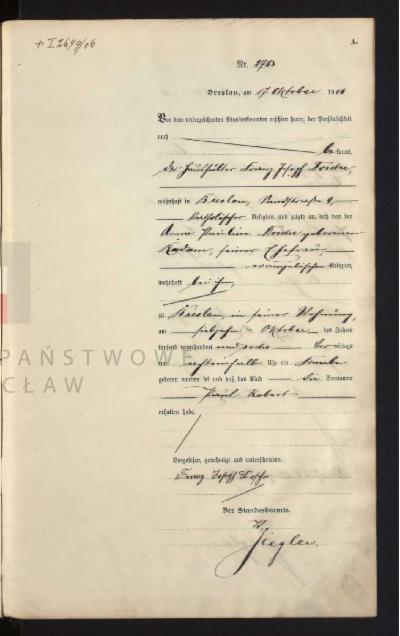 + I.2699/06
A.
Nr. 2783
Breslau, am 17 Oktober 1906
Vor dem unterzeichneten Standesbeamten erschien heute, der Persönlichkeit
nach
bekannt,
der Haushälter Franz Joseph
wohnhaft in Breslau, 9,
katholischer Religion, und zeigte an, daß von der
Anna Pauline geborenen
seiner Ehefrau,
evangelischer Religion,
wohnhaft bei ihm,
zu Breslau, in seiner Wohnung,
am siebzehn Oktober des Jahres
tausend neunhundert und sechs Vormittags
um Uhr ein Knabe
geboren worden sei und daß das Kind die Vornamen
Paul Robert
erhalten habe.
Vorgelesen, genehmigt und unterschrieben.
Franz Joseph
Der Standesbeamte.
Ziegler.
PAŃSTWOWE
CŁAW